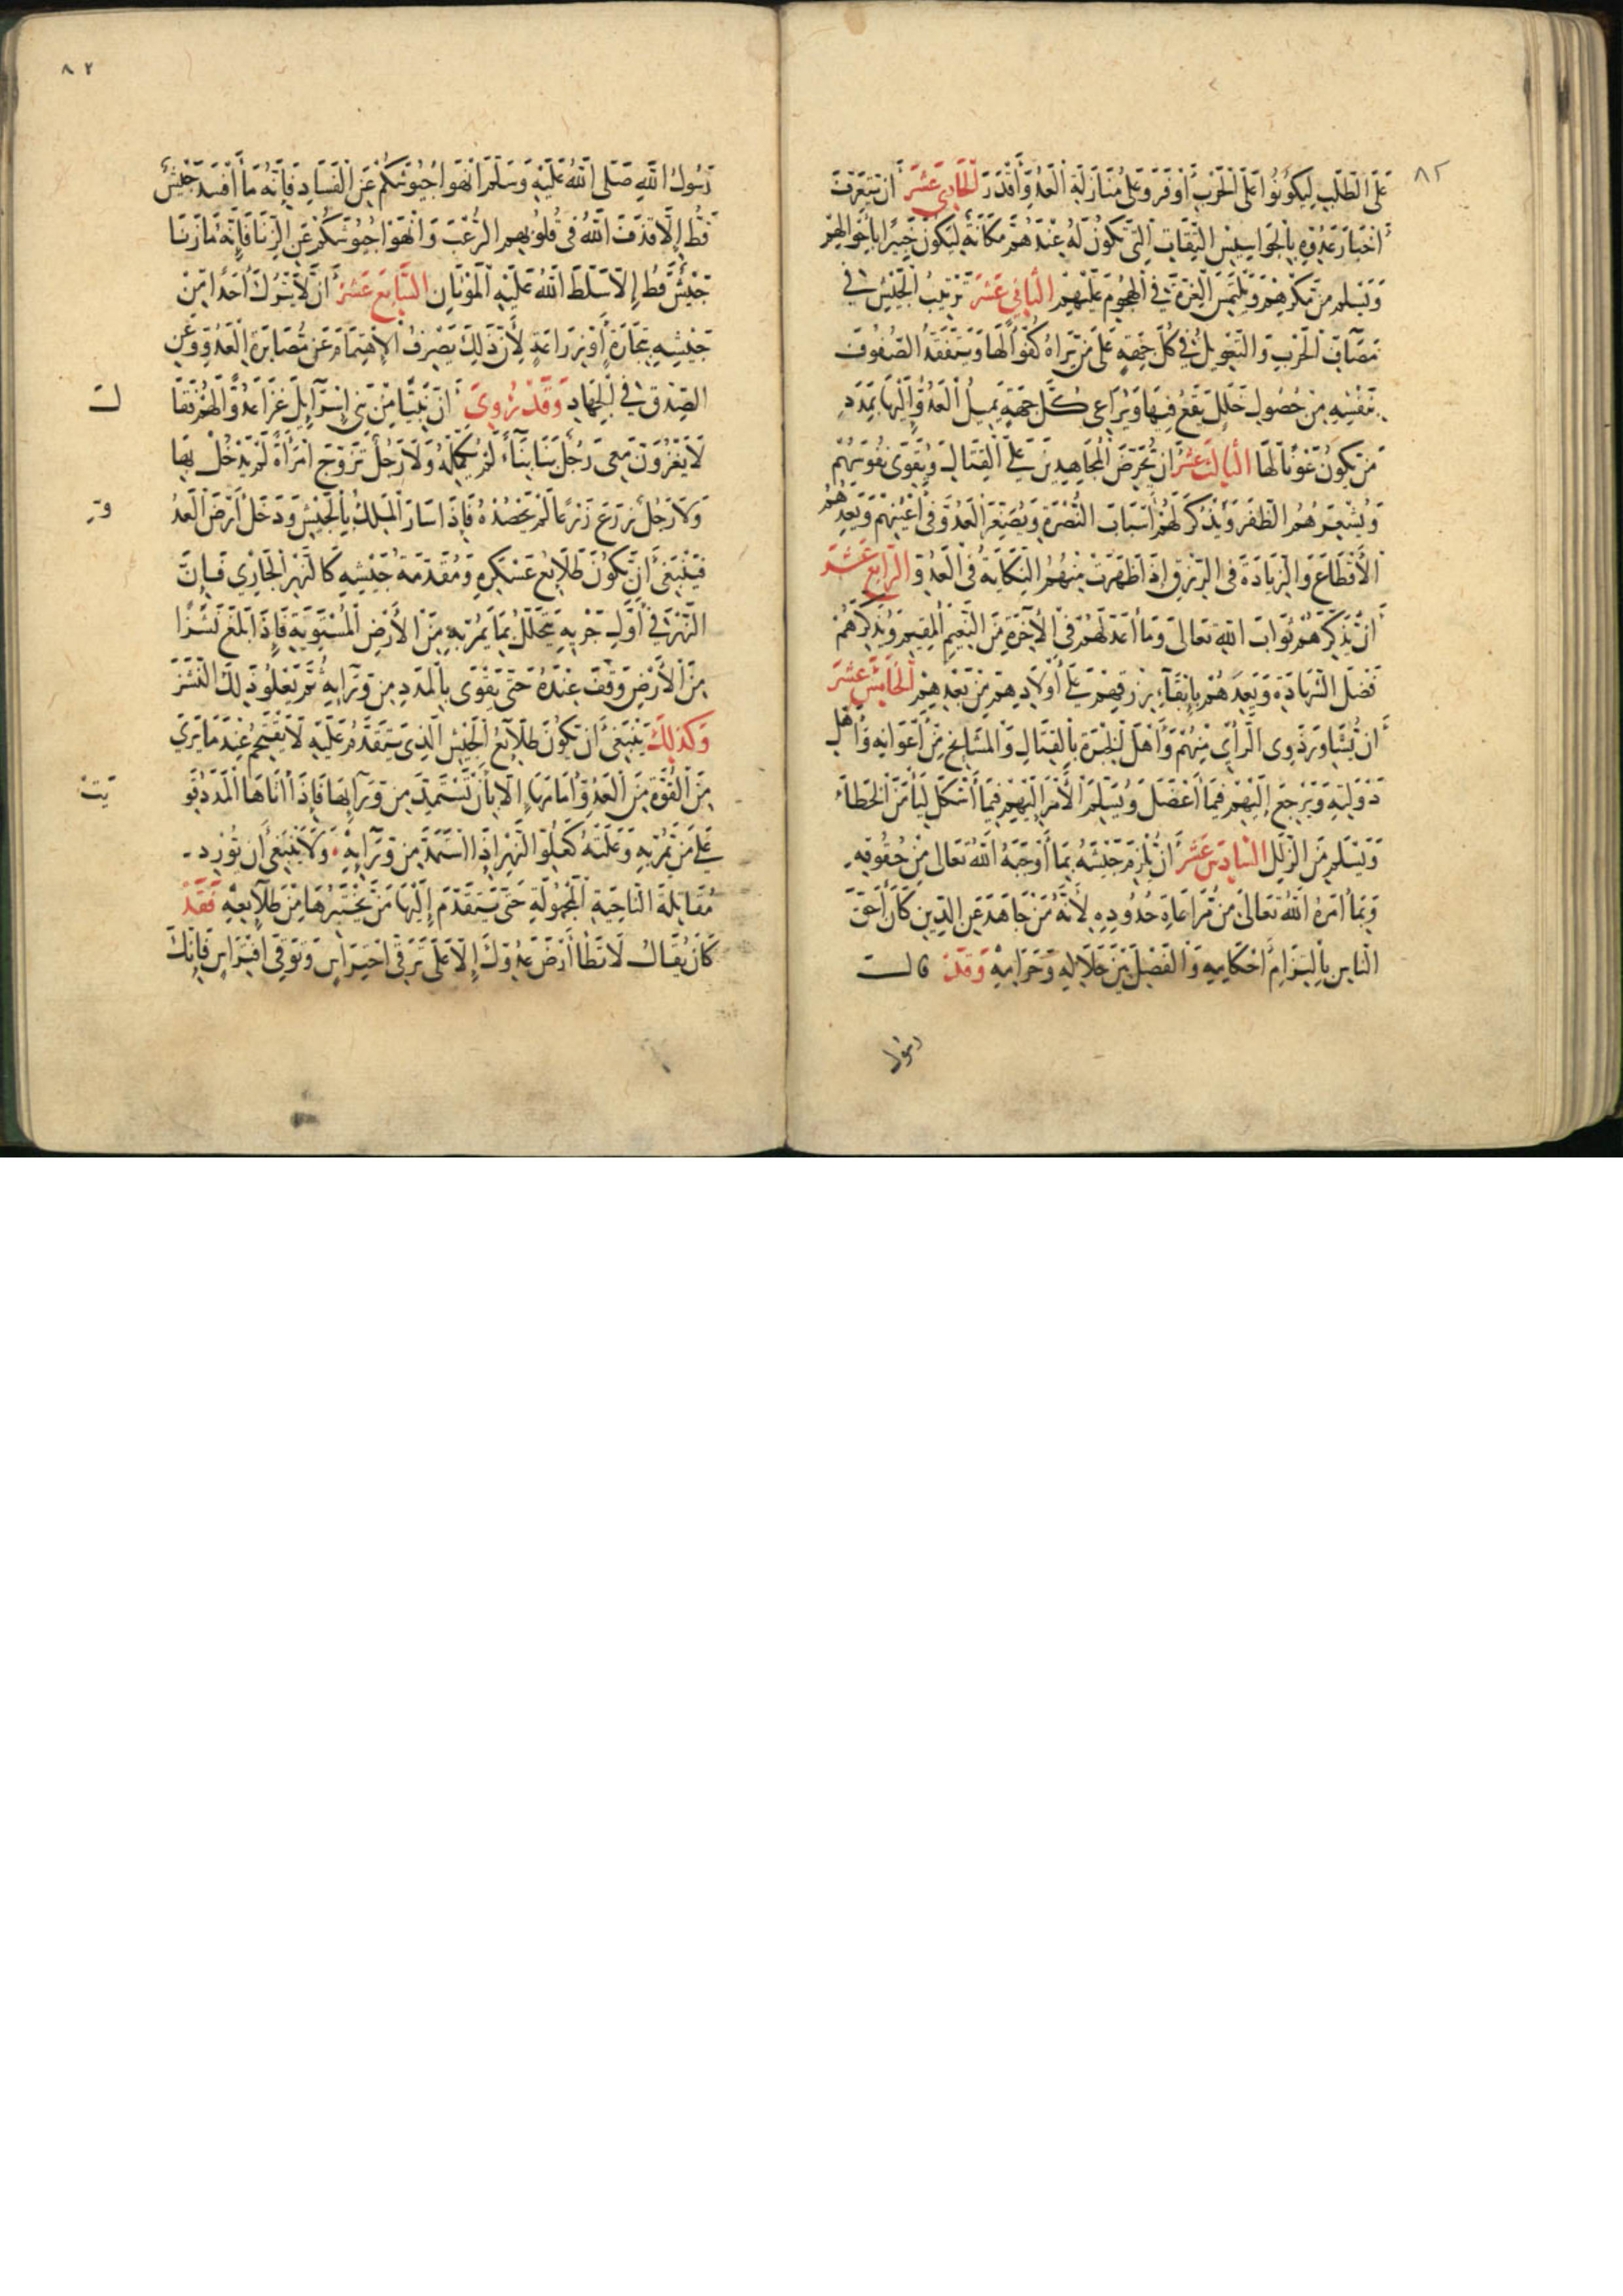 ٨٢
عَلَى الطَّلَبِ لِيَكُونُوا عَلَى الْحَرْبِ أَوْفَرَ وَعَلَى مُنَازَلَةِ الْعَدُوِّ أَقْدَرَ الْحَادِي عَشَرَ أَنْ يَتَعَرَّفَ
أَخْبَارَ عَدُوِّهِ بِالْجَوَاسِيسِ الثِّقَاتِ الَّتِي تَكُونُ لَهُ عِنْدَهُمْ مَكَانَةٌ لِيَكُونَ خَبِيرًا بِأَحْوَالِهِمْ
وَيَسْلَمَ مِنْ مَكْرِهِمْ وَيَلْتَمِسَ الْغِرَّةَ فِي الْهُجُومِ عَلَيْهِمْ الثَّانِي عَشَرَ تَرْتِيبُ الْجَيْشِ فِي
مَصَافِّ الْحَرْبِ وَالتَّعْوِيلُ فِي كُلِّ جِهَةٍ عَلَى مَنْ يَرَاهُ كُفُوًا لَهَا وَيَتَفَقَّدُ الصُّفُوفَ
بِنَفْسِهِ مِنْ حُصُولِ خَلَلٍ يَقَعُ فِيهَا وَيُرَاعِي كُلَّ جِهَةٍ يَمِيلُ الْعَدُوُّ إِلَيْهَا بِمَدَدٍ
مَنْ يَكُونُ عَوْنًا لَهَا الثَّالِثَ عَشَرَ أَنْ يُحَرِّضَ الْمُجَاهِدِينَ عَلَى الْقِتَالِ وَيُقَوِّي نُفُوسَهُمْ
وَيُشْعِرَهُمُ الظَّفَرَ وَيَذْكُرَ لَهُمْ أَسْبَابَ النُّصْرَةِ وَيُصَغِّرَ الْعَدُوَّ فِي أَعْيُنِهِمْ وَيَعِدَهُمُ
الْأَقْطَاعَ وَالزِّيَادَةَ فِي الرِّزْقِ إِذَا ظَهَرَتْ مِنْهُمُ النِّكَايَةُ فِي الْعَدُوِّ الرَّابِعَ عَشَرَ
أَنْ يُذَكِّرَهُمْ ثَوَابَ اللَّهِ تَعَالَى وَمَا أَعَدَّ لَهُمْ فِي الْآخِرَةِ مِنَ النَّعِيمِ الْمُقِيمِ وَيُذَكِّرَهُمْ
فَضْلَ الشَّهَادَةِ وَيَعِدَهُمْ بِإِبْقَاءِ رِزْقِهِمْ عَلَى أَوْلَادِهِمْ مِنْ بَعْدِهِمْ الْخَامِسَ عَشَرَ
أَنْ يُشَاوِرَ ذَوِي الرَّأْيِ مِنْهُمْ وَأَهْلَ الْخِبْرَةِ بِالْقِتَالِ وَالْمَشَايِخِ مِنْ أَعْوَانِهِ وَأَهْلِ
دَوْلَتِهِ وَيَرْجِعَ إِلَيْهِمْ فِيمَا أَعْضَلَ وَيُسَلِّمَ الْأَمْرَ إِلَيْهِمْ فِيمَا أَشْكَلَ لِيَأْمَنَ الْخَطَاءَ
وَيَسْلَمَ مِنَ الزَّلَلِ السَّادِسَ عَشَرَ أَنْ يُلْزِمَ جَيْشَهُ بِمَا أَوْجَبَهُ اللَّهُ تَعَالَى مِنْ حُقُوقِهِ
وَبِمَا أَمَرَهُ اللَّهُ تَعَالَى مِنْ مُرَاعَاةِ حُدُودِهِ لِأَنَّهُ مَنْ جَاهَدَ عَنِ الدِّينِ كَانَ أَحَقَّ
النَّاسِ بِالْتِزَامِ أَحْكَامِهِ وَالْفَصْلِ بَيْنَ حَلَالِهِ وَحَرَامِهِ وَقَدْ قَالَ
رسول
٨٢
رَسُولُ اللَّهِ صَلَّى اللَّهُ عَلَيْهِ وَسَلَّمَ انْهَوْا جُيُوشَكُمْ عَنِ الْفَسَادِ فَإِنَّهُ مَا أَفْسَدَ جَيْشٌ
قَطُّ إِلَّا قَذَفَ اللَّهُ فِي قُلُوبِهِمُ الرُّعْبَ وَانْهَوْا جُيُوشَكُمْ عَنِ الزِّنَا فَإِنَّهُ مَا زَنَا
جَيْشٌ قَطُّ إِلَّا سَلَّطَ اللَّهُ عَلَيْهِ الْمَوْتَانِ السَّابِعَ عَشَرَ أَنْ لَا يَتْرُكَ أَحَدًا مِنْ
جَيْشِهِ بِتِجَارَةٍ أَوْ زِرَاعَةٍ لِأَنَّ ذَلِكَ يَصْرِفُ الْاهْتِمَامَ عَنْ مُصَابَرَةِ الْعَدُوِّ وَعَنِ
الصِّدْقِ فِي الْجِهَادِ وَقَدْ رُوِيَ أَنَّ نَبِيًّا مِنْ بَنِي إِسْرَائِيلَ غَزَا عَدُوًّا لَهُمْ فَقَا
ل
لَا يَغْزُوَنَّ مَعِي رَجُلٌ بَنَا بِنَاءً لَمْ يُكْمِلْهُ وَلَا رَجُلٌ تَزَوَّجَ امْرَأَةً لَمْ يَدْخُلْ بِهَا
وَلَا رَجُلٌ زَرَعَ زَرْعًا لَمْ يَحْصُدْهُ فَإِذَا سَارَ الْمَلِكُ بِالْجَيْشِ وَدَخَلَ أَرْضَ الْعَدُ
وِّ
فَيَنْبَغِي أَنْ تَكُونَ طَلَائِعُ عَسْكَرِهِ وَمُقَدَّمَةُ جَيْشِهِ كَالنَّهْرِ الْجَارِي فَإِنَّ
النَّهْرَ فِي أَوَّلِ جَرْيِهِ يَتَخَلَّلُ بِمَا يَمُرُّ بِهِ مِنَ الْأَرْضِ الْمُسْتَوِيَةِ فَإِذَا بَلَغَ نَشَزًا
مِنَ الْأَرْضِ وَقَفَ عِنْدَهُ حَتَّى يَقْوَى بِالْمَدَدِ مِنْ وَرَائِهِ ثُمَّ يَعْلُو ذَلِكَ النَّشَزَ
وَكَذَلِكَ يَنْبَغِي أَنْ تَكُونَ طَلَائِعُ الْجَيْشِ الَّذِي يَتَقَدَّمُ عَلَيْهِ لَا يَقْتَحِمُ عِنْدَ مَا يَرَى
مِنَ الْقُوَّةِ مِنَ الْعَدُوِّ أَمَامَهَا إِلَّا بِأَنْ تَسْتَمِدَّ مِنْ وَرَائِهَا فَإِذَا أَتَاهَا الْمَدَدُ قَوِ
يَتْ
عَلَى مَنْ تَمُرُّ بِهِ وَعَلَتْهُ كَعُلُوِّ النَّهْرِ إِذَا اسْتَمَدَّ مِنْ وَرَائِهِ وَلَا يَنْبَغِي أَنْ يُورِدَ
مُقَابَلَةَ النَّاحِيَةِ الْمَجْهُولَةِ حَتَّى يَتَقَدَّمَ إِلَيْهَا مَنْ يَخْتَبِرُهَا مِنْ طَلَائِعِهِ فَقَدْ
كَانَ يُقَالُ لَا تَطَأْ أَرْضَ عَدُوِّكَ إِلَّا عَلَى تَرَقِّي احْتِرَاسٍ وَتَوَقِّي افْتِرَاسٍ فَإِنَّكَ